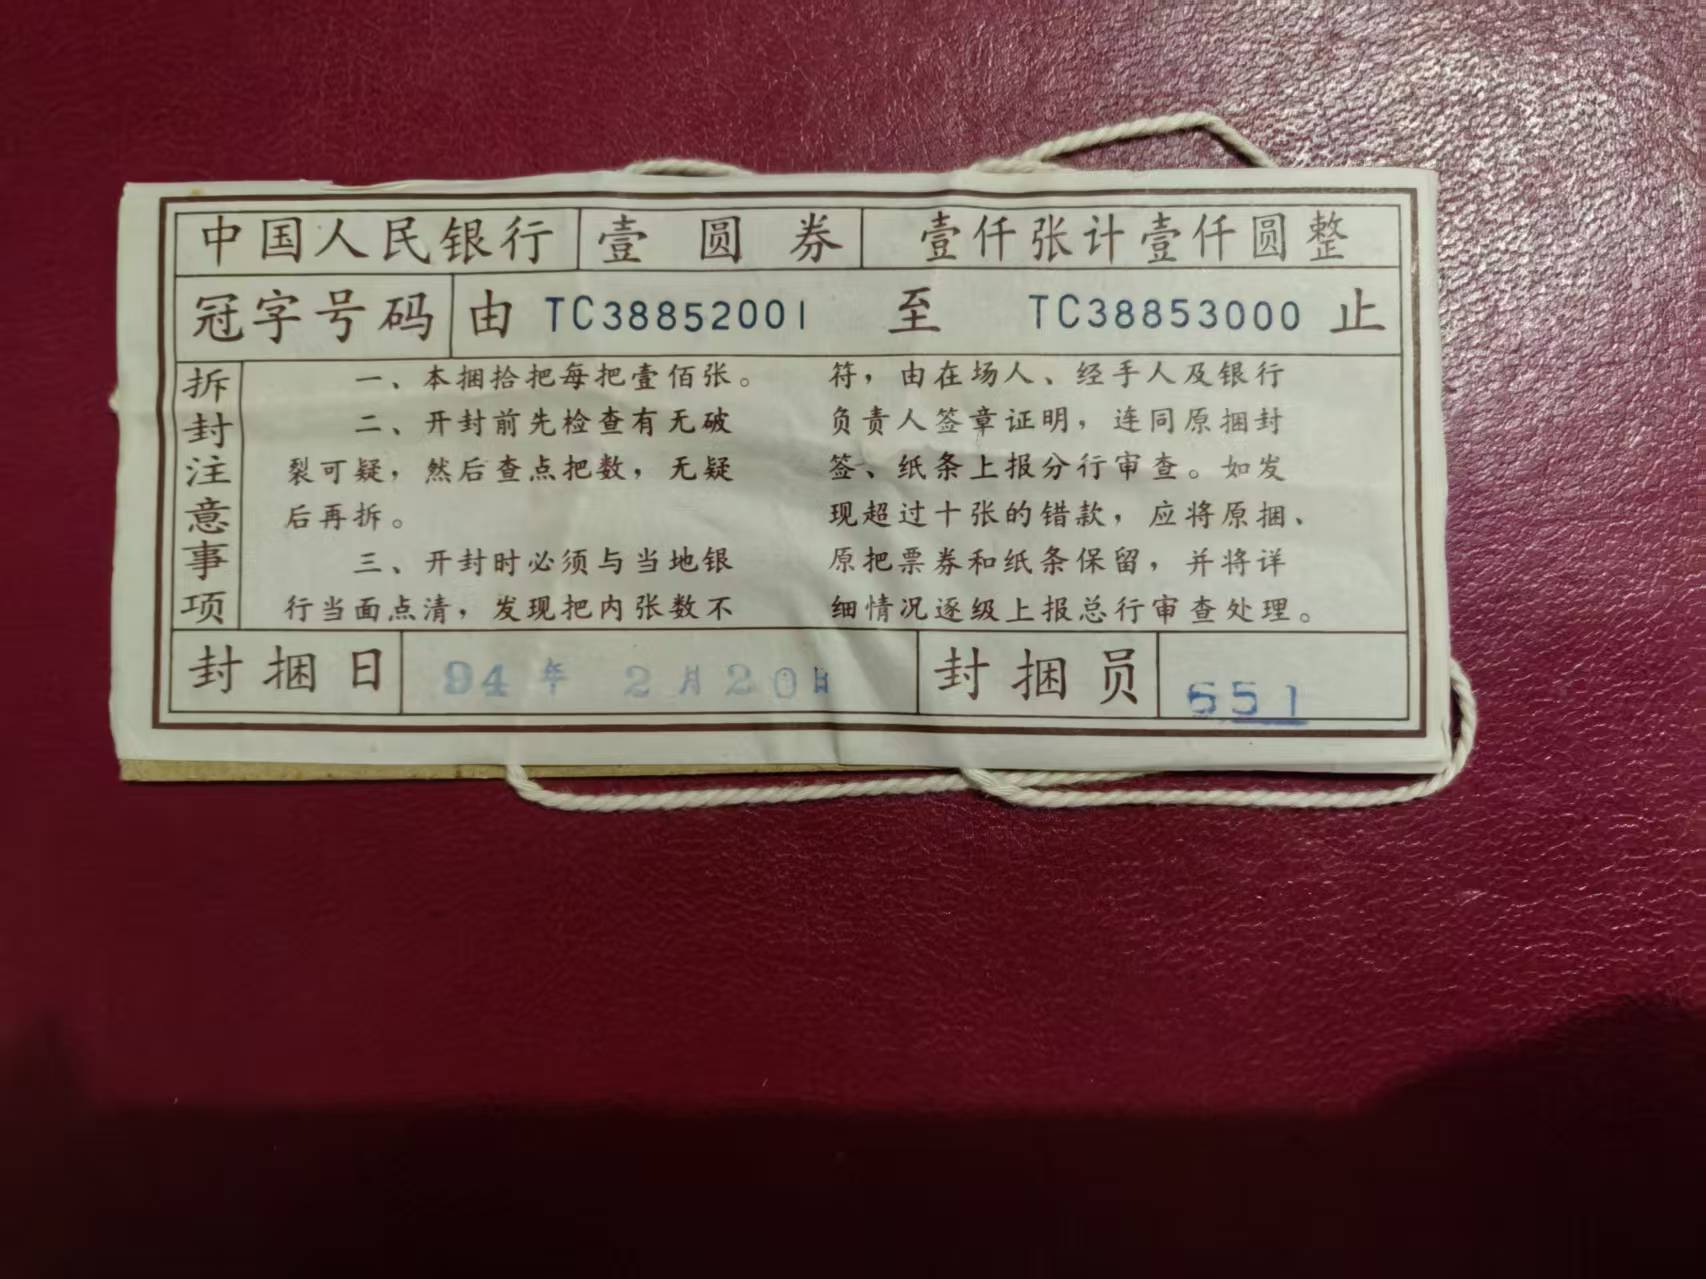 中国人民银行 壹圆券 壹仟张计壹仟圆整
冠字号码 由 TC38852001 至 TC38853000 止
拆封注意事项
一、本捆拾把每把壹佰张。
二、开封前先检查有无破
裂可疑，然后查点把数，无疑
后再拆。
三、开封时必须与当地银
行当面点清，发现把内张数不
符，由在场人、经手人及银行
负责人签章证明，连同原捆封
签、纸条上报分行审查。如发
现超过十张的错款，应将原捆、
原把票券和纸条保留，并将详
细情况逐级上报总行审查处理。
封捆日 94年 2月20日 封捆员 651